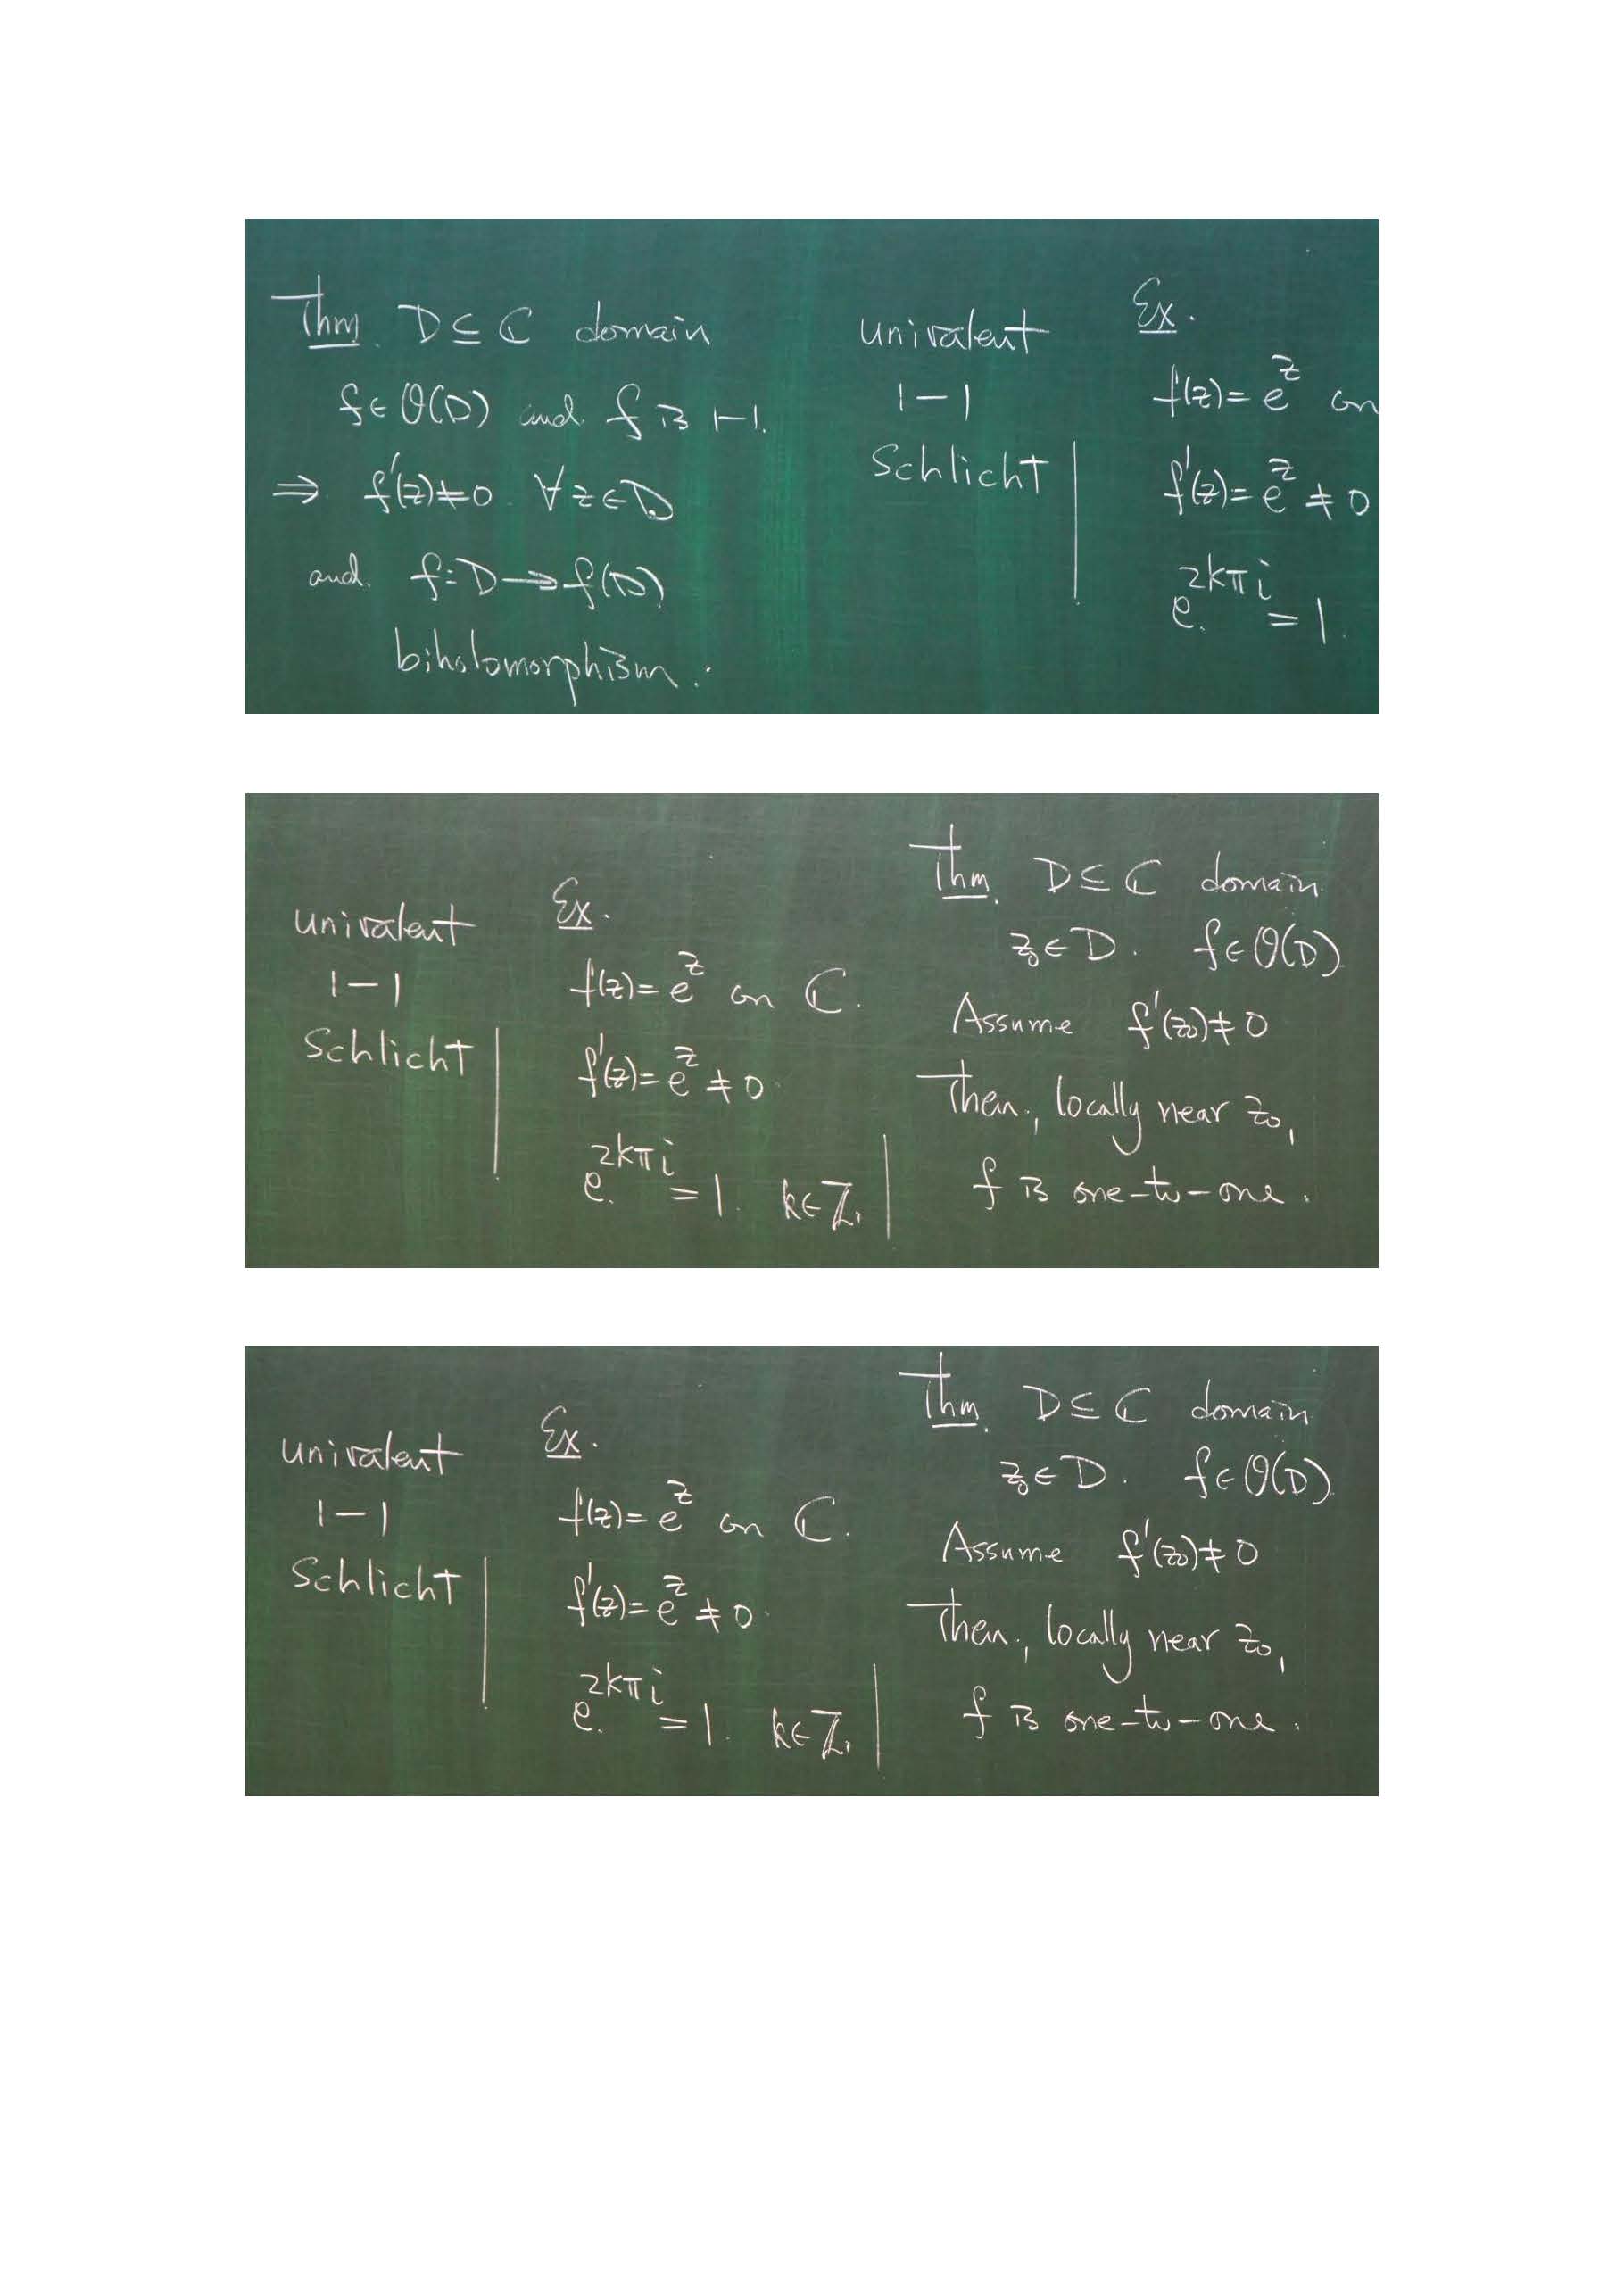 Thm. D ⊆ ℂ domain
f ∈ O(D) and f is 1-1.
⇒ f'(z) ≠ 0 ∀ z ∈ D
and f: D → f(D)
biholomorphism.
univalent
1-1
Schlicht
Ex.
f(z) = e^z on
f'(z) = e^z ≠ 0
e^{2kπi} = 1.
univalent
1-1
Schlicht
Ex.
f(z) = e^z on ℂ.
f'(z) = e^z ≠ 0
e^{2kπi} = 1. k ∈ ℤ.
Thm. D ⊆ ℂ domain
z₀ ∈ D. f ∈ O(D)
Assume f'(z₀) ≠ 0
Then, locally near z₀,
f is one-to-one.
univalent
1-1
Schlicht
Ex.
f(z) = e^z on ℂ.
f'(z) = e^z ≠ 0
e^{2kπi} = 1. k ∈ ℤ.
Thm. D ⊆ ℂ domain
z₀ ∈ D. f ∈ O(D)
Assume f'(z₀) ≠ 0
Then, locally near z₀,
f is one-to-one.